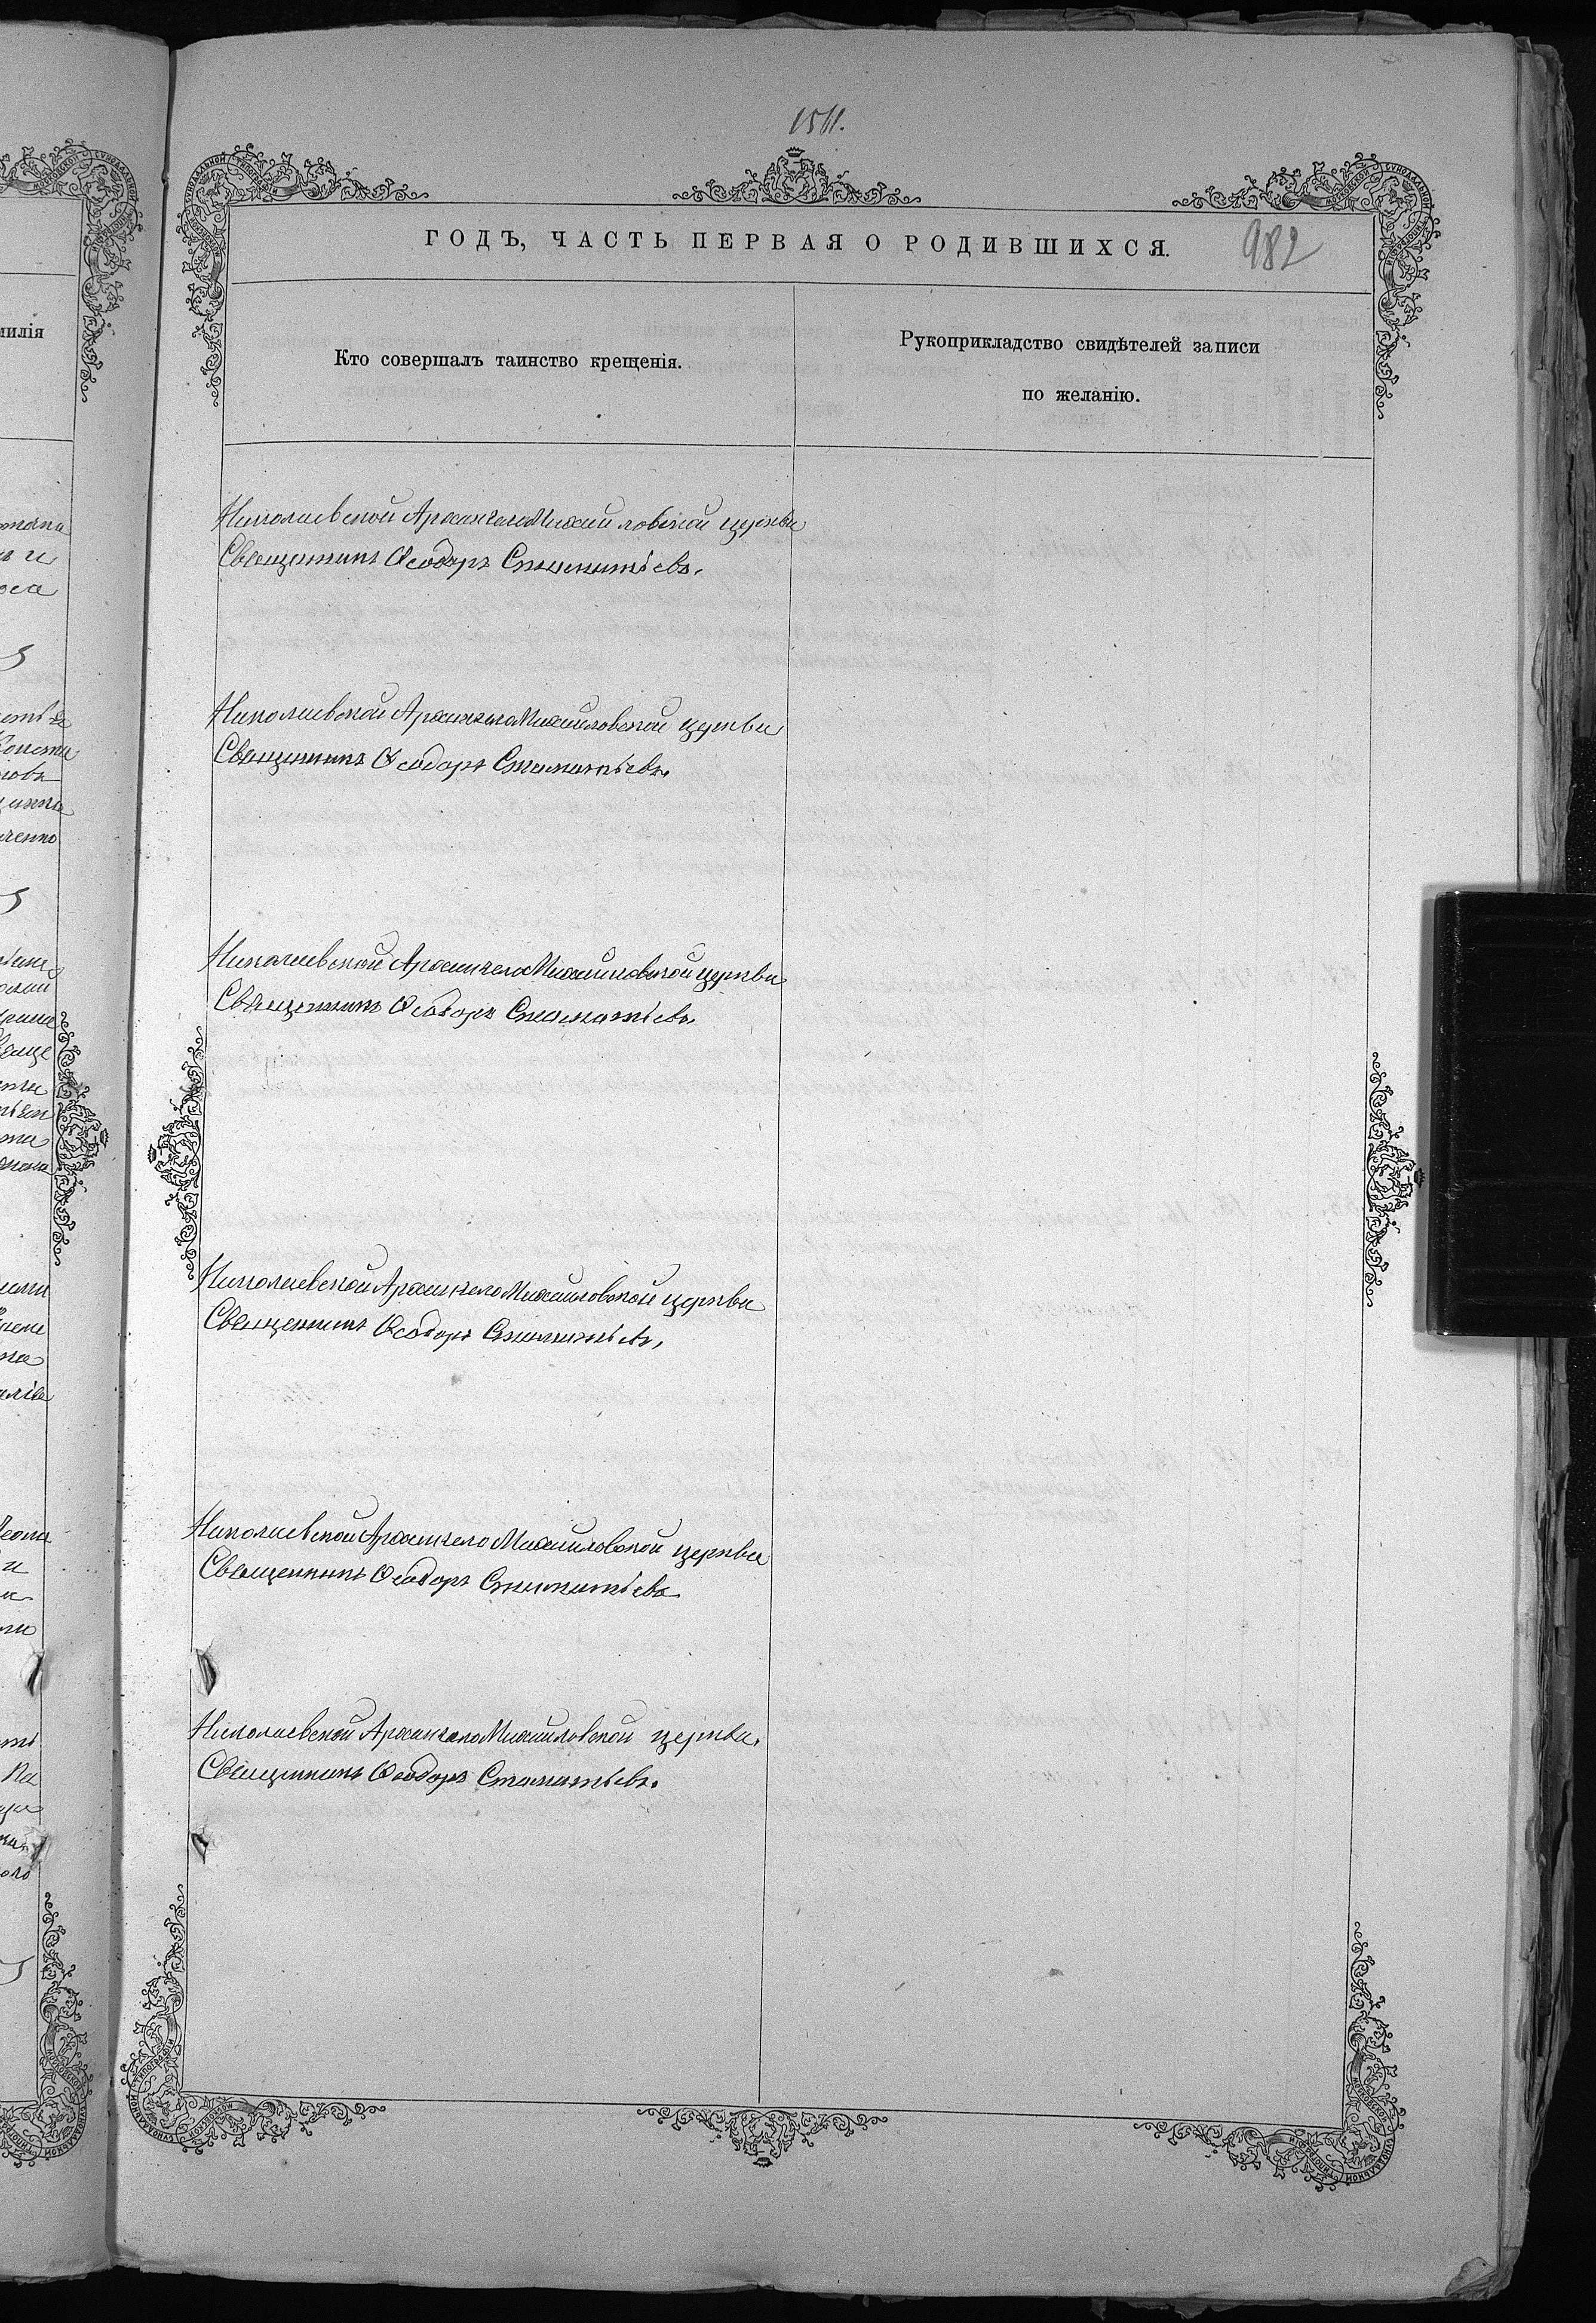 982
ГОДЪ, ЧАСТЬ ПЕРВАЯ О РОДИВШИХСЯ.
Кто совершалъ таинство крещенія.
Рукоприкладство свидѣтелей записи
по желанію.
Николаевской Архангело Михайловской церкви
Священникъ Ѳеодоръ Стаматьевъ.
Николаевской Архангело Михайловской церкви
Священникъ Ѳеодоръ Стаматьевъ.
Николаевской Архангело Михайловской церкви
Священникъ Ѳеодоръ Стаматьевъ.
Николаевской Архангело Михайловской церкви
Священникъ Ѳеодоръ Стаматьевъ.
Николаевской Архангело Михайловской церкви
Священникъ Ѳеодоръ Стаматьевъ
Николаевской Архангело Михайловской церкви.
Священникъ Ѳеодоръ Стаматьевъ.